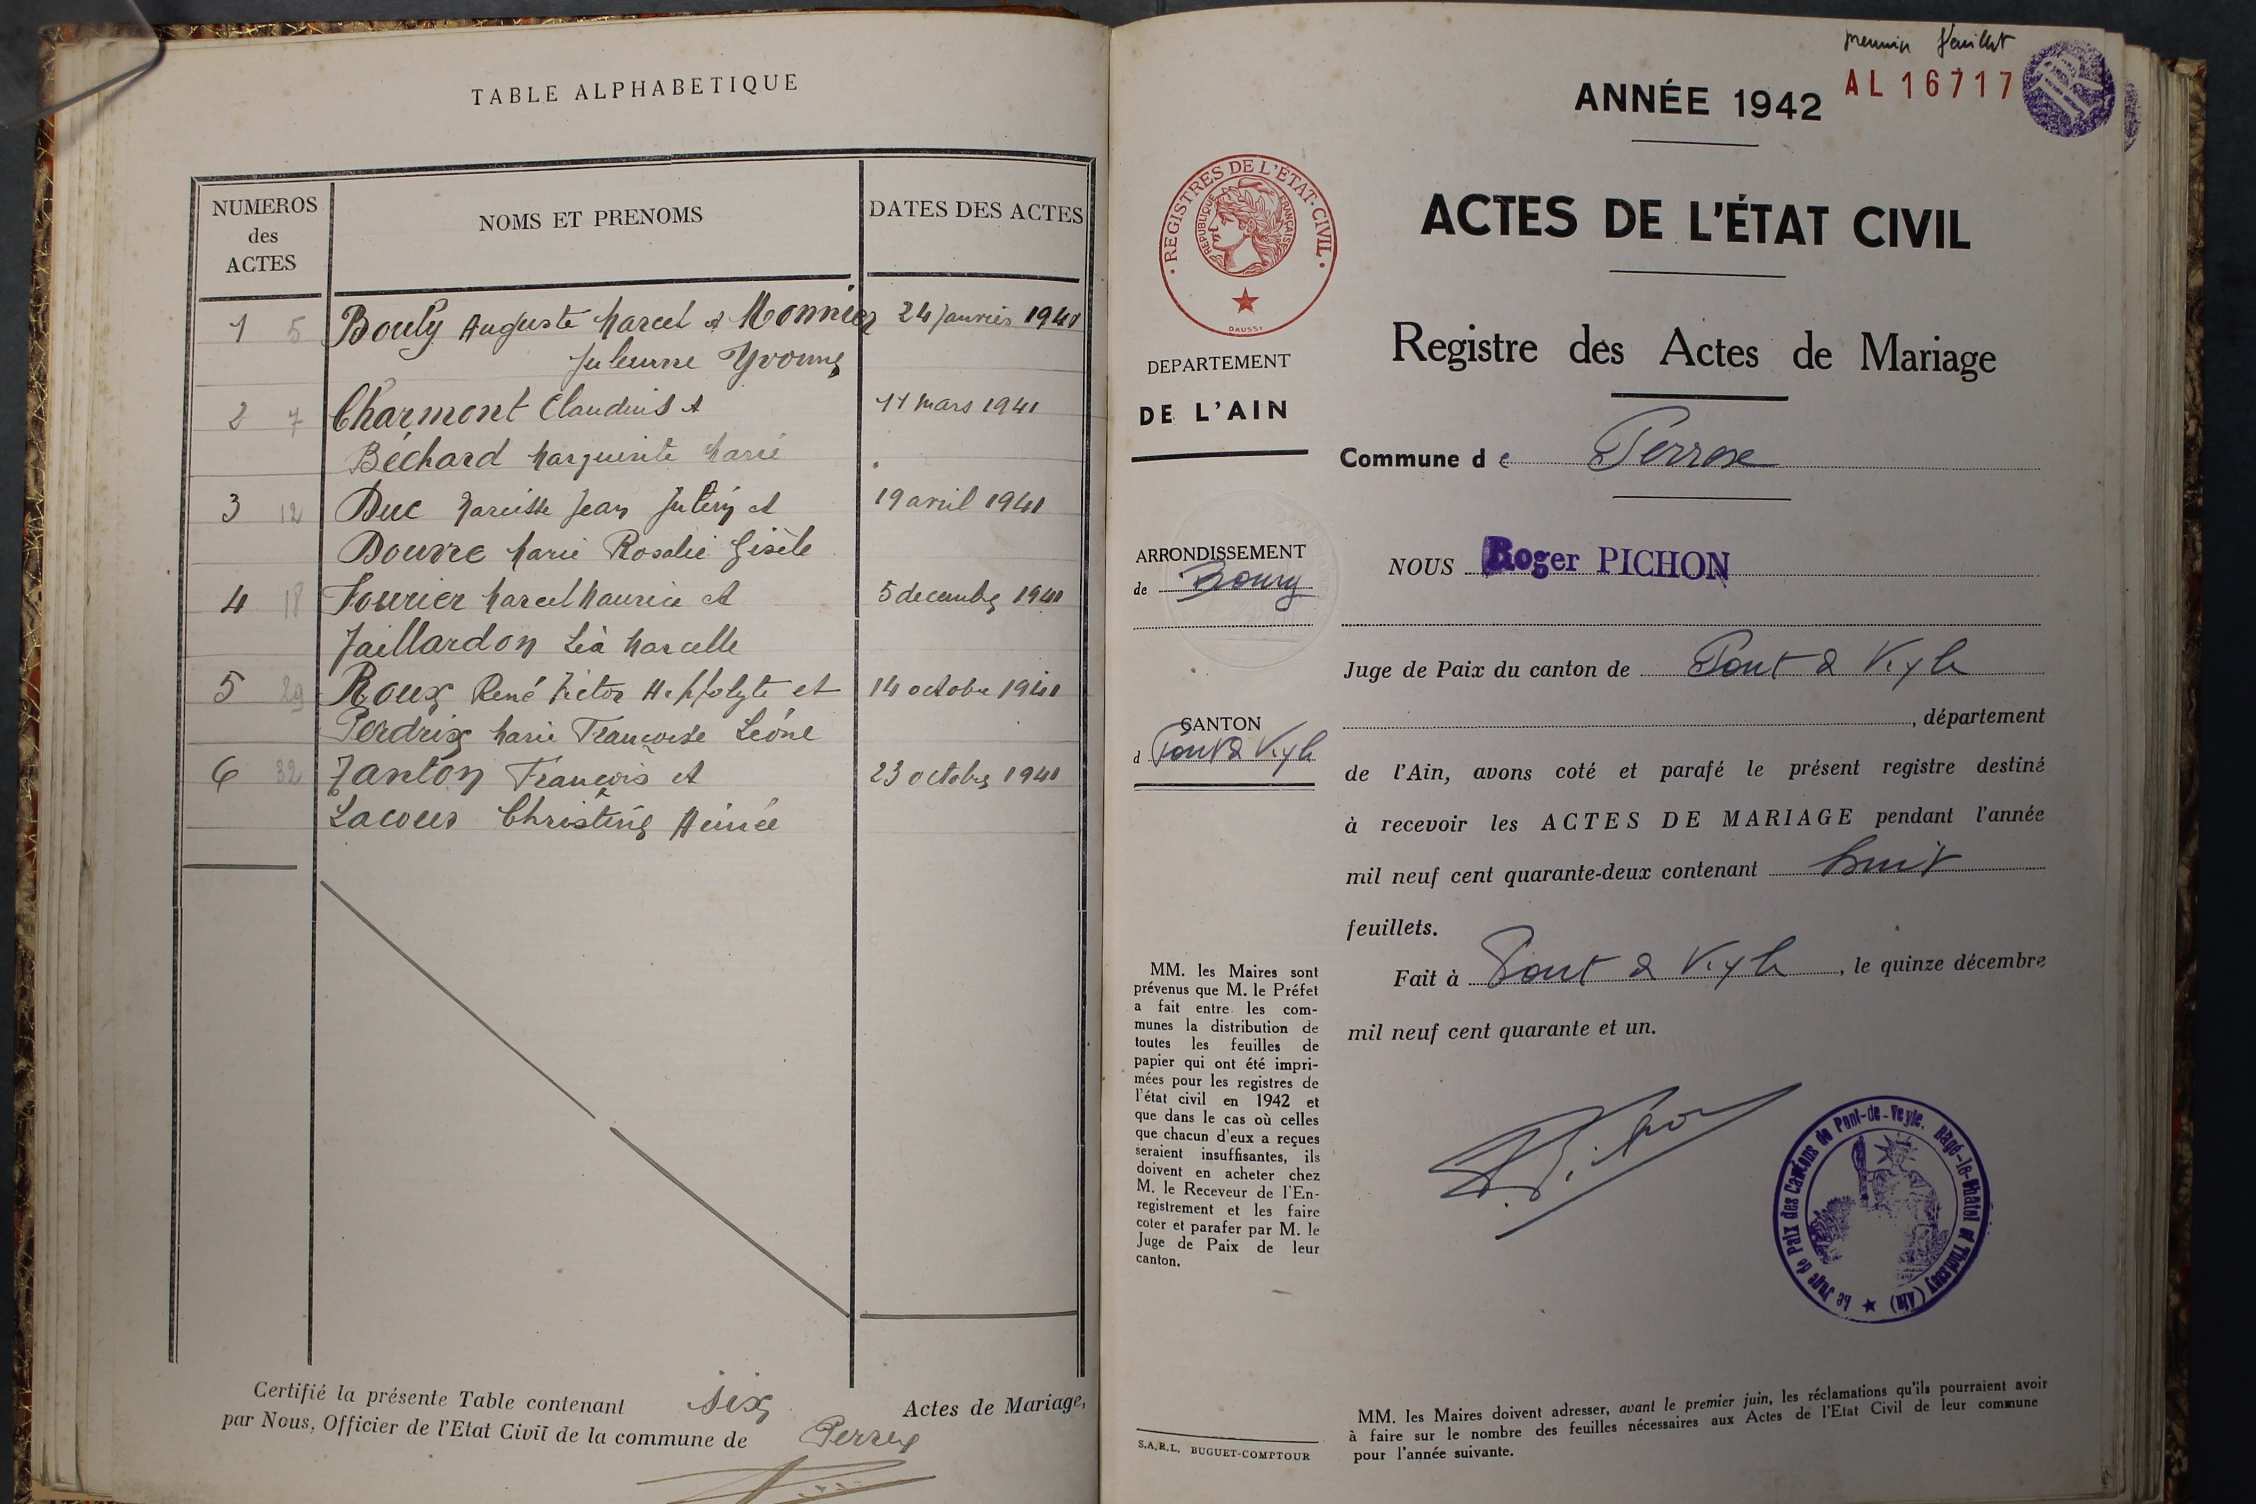 TABLE ALPHABETIQUE
NUMEROS
des
ACTES
NOMS ET PRENOMS
DATES DES ACTES
1 5 Bouly Auguste Marcel et Monnier 24 Janvier 1941
Julienne Yvonne
2 7 Charmont Claudius et 11 Mars 1941
Béchard Marguerite Marie
3 12 Duc Narcisse Jean et 19 avril 1941
Douvre Marie Rosalie Gisèle
4 18 Fourier Marcel Maurice et 5 décembre 1941
Jaillardon Léa Marcelle
5 29 Roux René Victor Hippolyte et 14 octobre 1941
Perdrix Marie Françoise Léone
6 32 Janton François et 23 octobre 1941
Lacour Christine Aimée
Certifié la présente Table contenant six Actes de Mariage,
par Nous, Officier de l'Etat Civil de la commune de Perrex
premier feuillet
AL 16717
ANNÉE 1942
REGISTRES DE L'ETAT-CIVIL
REPUBLIQUE FRANÇAISE
DAUSSY
ACTES DE L'ÉTAT CIVIL
Registre des Actes de Mariage
DEPARTEMENT
DE L'AIN
Commune de Perrex
ARRONDISSEMENT
de Bourg
CANTON
d Pont de Veyle
NOUS Roger PICHON
Juge de Paix du canton de Pont de Veyle
, département
de l'Ain, avons coté et parafé le présent registre destiné
à recevoir les ACTES DE MARIAGE pendant l'année
mil neuf cent quarante-deux contenant huit
feuillets.
Fait à Pont de Veyle, le quinze décembre
mil neuf cent quarante et un.
Le Juge de Paix des Cantons de Pont-de-Veyle, Bagé-le-Châtel et Thoissey (Ain)
MM. les Maires sont
prévenus que M. le Préfet
a fait entre les com-
munes la distribution de
toutes les feuilles de
papier qui ont été impri-
mées pour les registres de
l'état civil en 1942 et
que dans le cas où celles
que chacun d'eux a reçues
seraient insuffisantes, ils
doivent en acheter chez
M. le Receveur de l'En-
registrement et les faire
coter et parafer par M. le
Juge de Paix de leur
canton.
S.A.R.L. BUGUET-COMPTOUR
MM. les Maires doivent adresser, avant le premier juin, les réclamations qu'ils pourraient avoir
à faire sur le nombre des feuilles nécessaires aux Actes de l'Etat Civil de leur commune
pour l'année suivante.